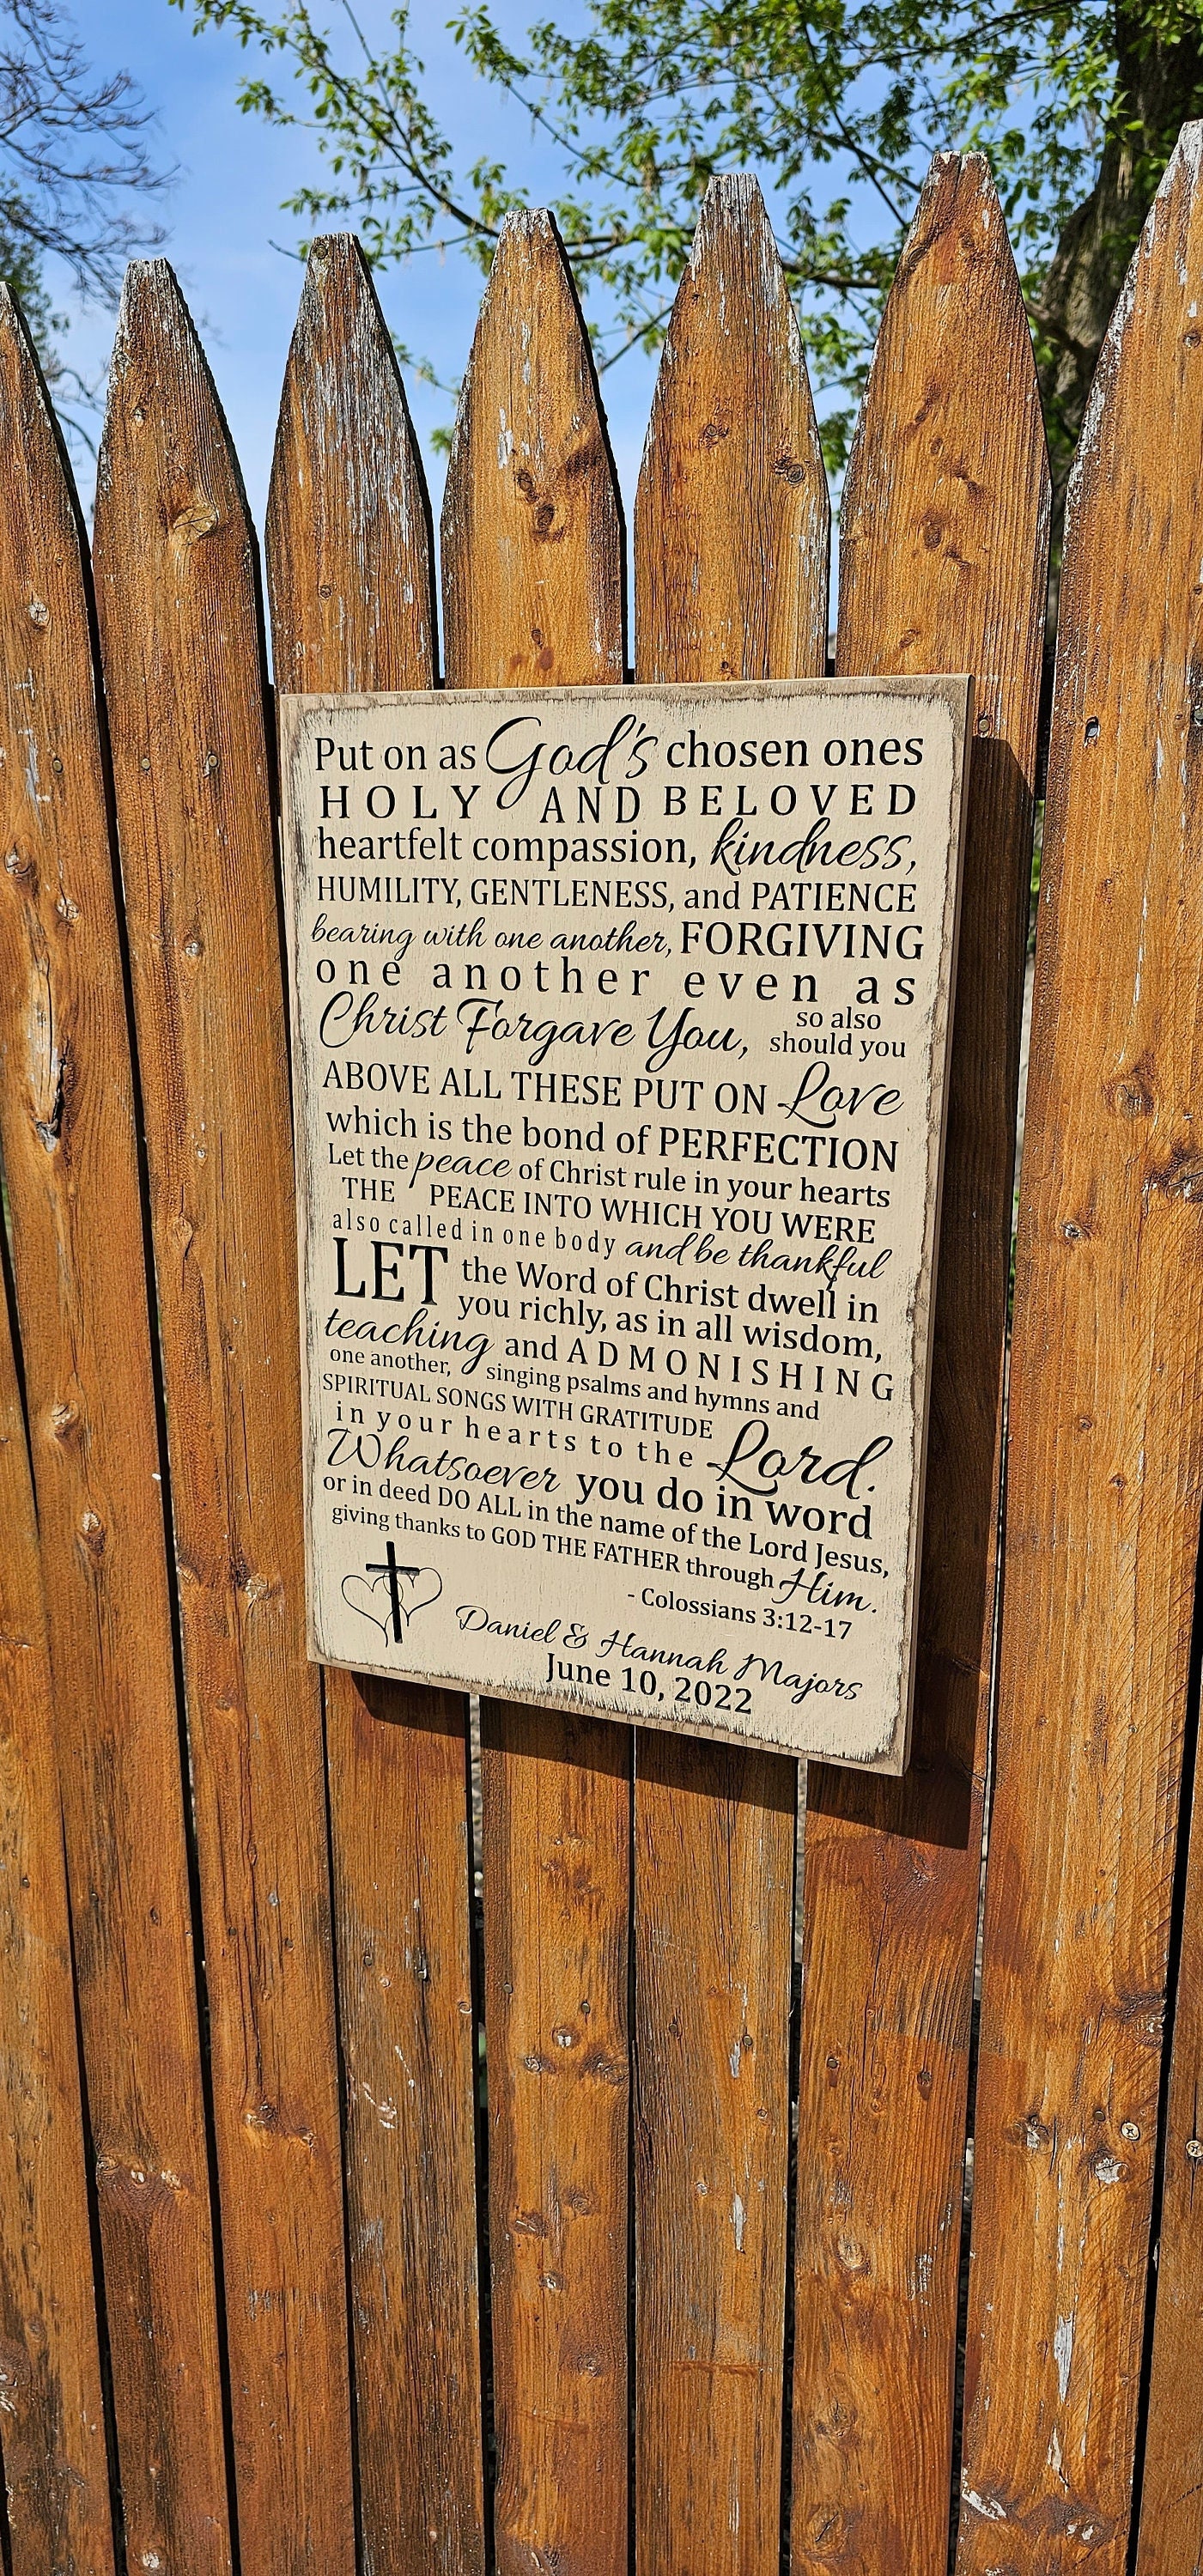 Put on as God's chosen ones
HOLY AND BELOVED
heartfelt compassion, kindness,
HUMILITY, GENTLENESS, and PATIENCE
bearing with one another, FORGIVING
one another even as
Christ Forgave You, so also
should you
ABOVE ALL THESE PUT ON Love
which is the bond of PERFECTION
Let the peace of Christ rule in your hearts
THE PEACE INTO WHICH YOU WERE
also called in one body and be thankful
LET the Word of Christ dwell in
you richly, as in all wisdom,
teaching and ADMONISHING
one another, singing psalms and hymns and
SPIRITUAL SONGS WITH GRATITUDE
in your hearts to the Lord.
Whatsoever you do in word
or in deed DO ALL in the name of the Lord Jesus,
giving thanks to GOD THE FATHER through Him.
- Colossians 3:12-17
Daniel & Hannah Majors
June 10, 2022